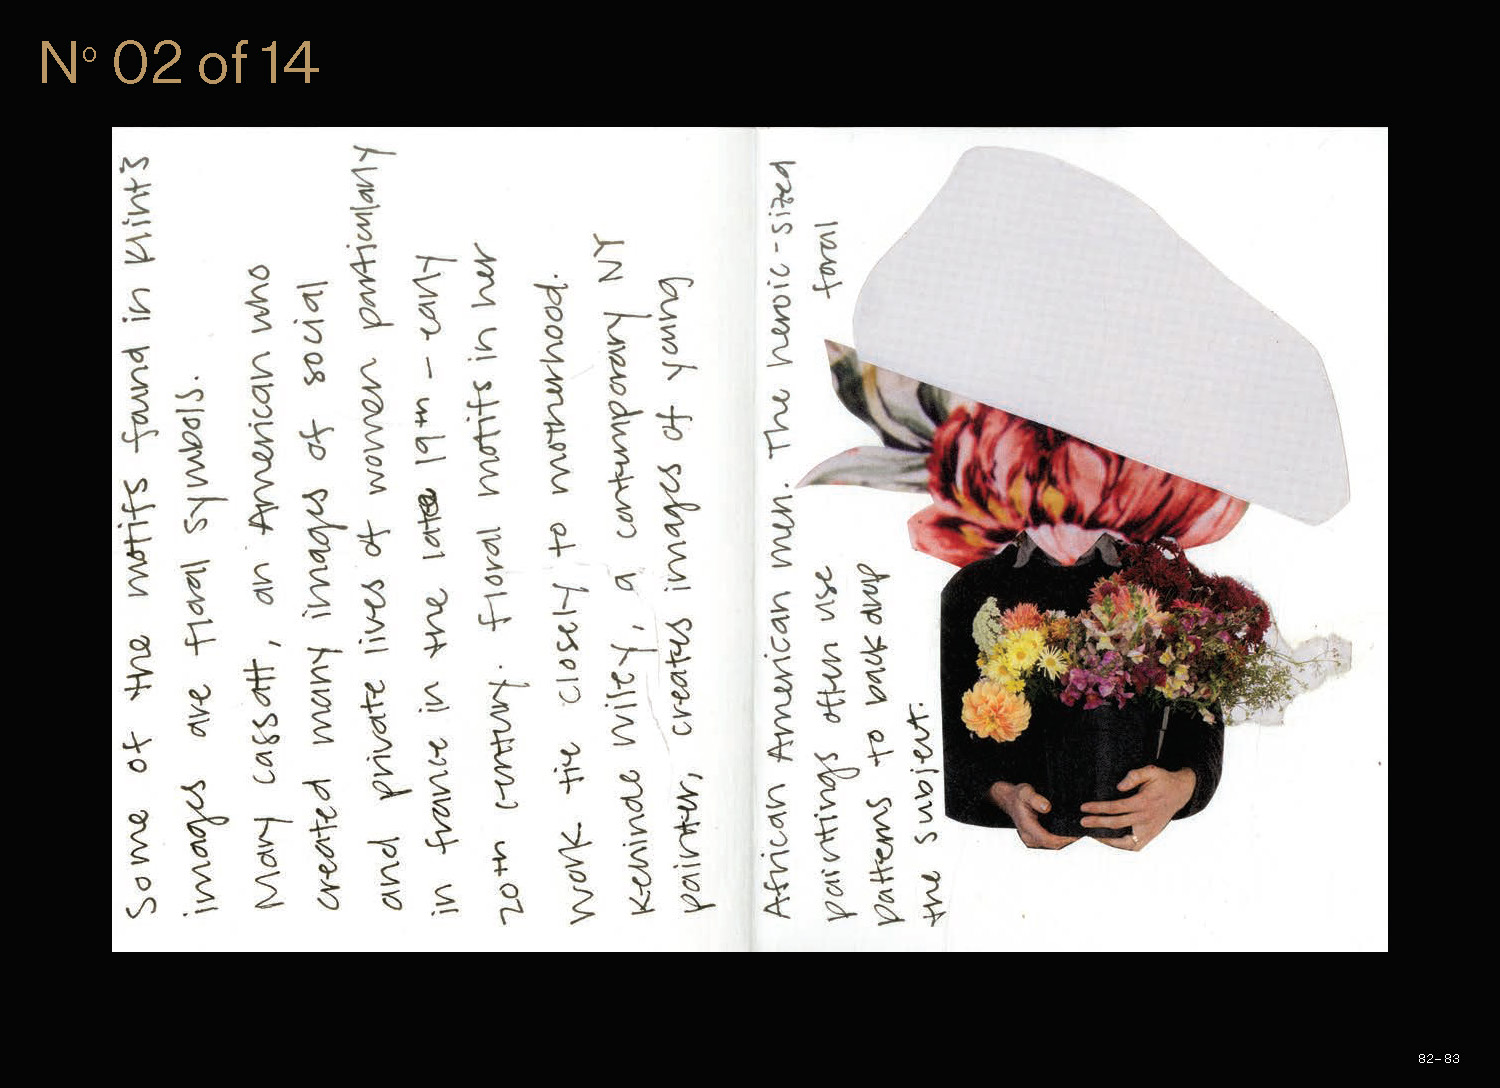 Nº 02 of 14
Some of the motifs found in Klint's
images are floral symbols.
Mary Cassatt, an American who
created many images of social
and private lives of women particularly
in france in the late 19th - early
20th century. Floral motifs in her
work tie closely to motherhood.
Kehinde Wiley, a contemporary NY
painter, creates images of young
African American men. The heroic-sized
paintings often use foral
patterns to back drop
the subject.
82-83